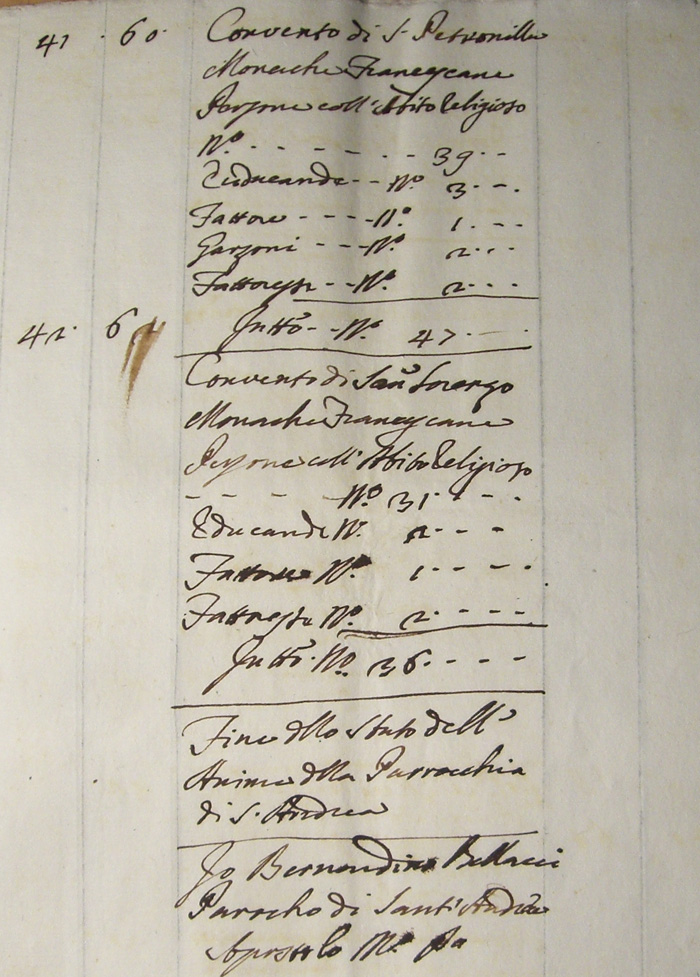 41 · 60 · Convento di S. Petronilla
Monache Francescane
Persone coll'Abito Religioso
N.º - - - - - - 39 - -
Educande - - Nº 3 - - -
Fattore - - - - N.º 1 - - -
Garzoni - - - Nº 2 - - -
Fattoresse - - Nº 2 - - -
42 · 61 Tutto - - Nº 47 - -
Convento di San Lorenzo
Monache Francescane
Persone coll'Abito Religioso
- - - - Nº 31 - - -
Educande Nº 2 - - -
Fattore Nº 1 - - - -
Fattoresse Nº 2 - - - -
Tutto · Nº 36 - - - -
Fine dllo Stato dell'
Anime dlla Parrocchia
di S. Andrea
Io Bernardino Bellacci
Parrocho di Sant' Andrea
Apostolo Mº